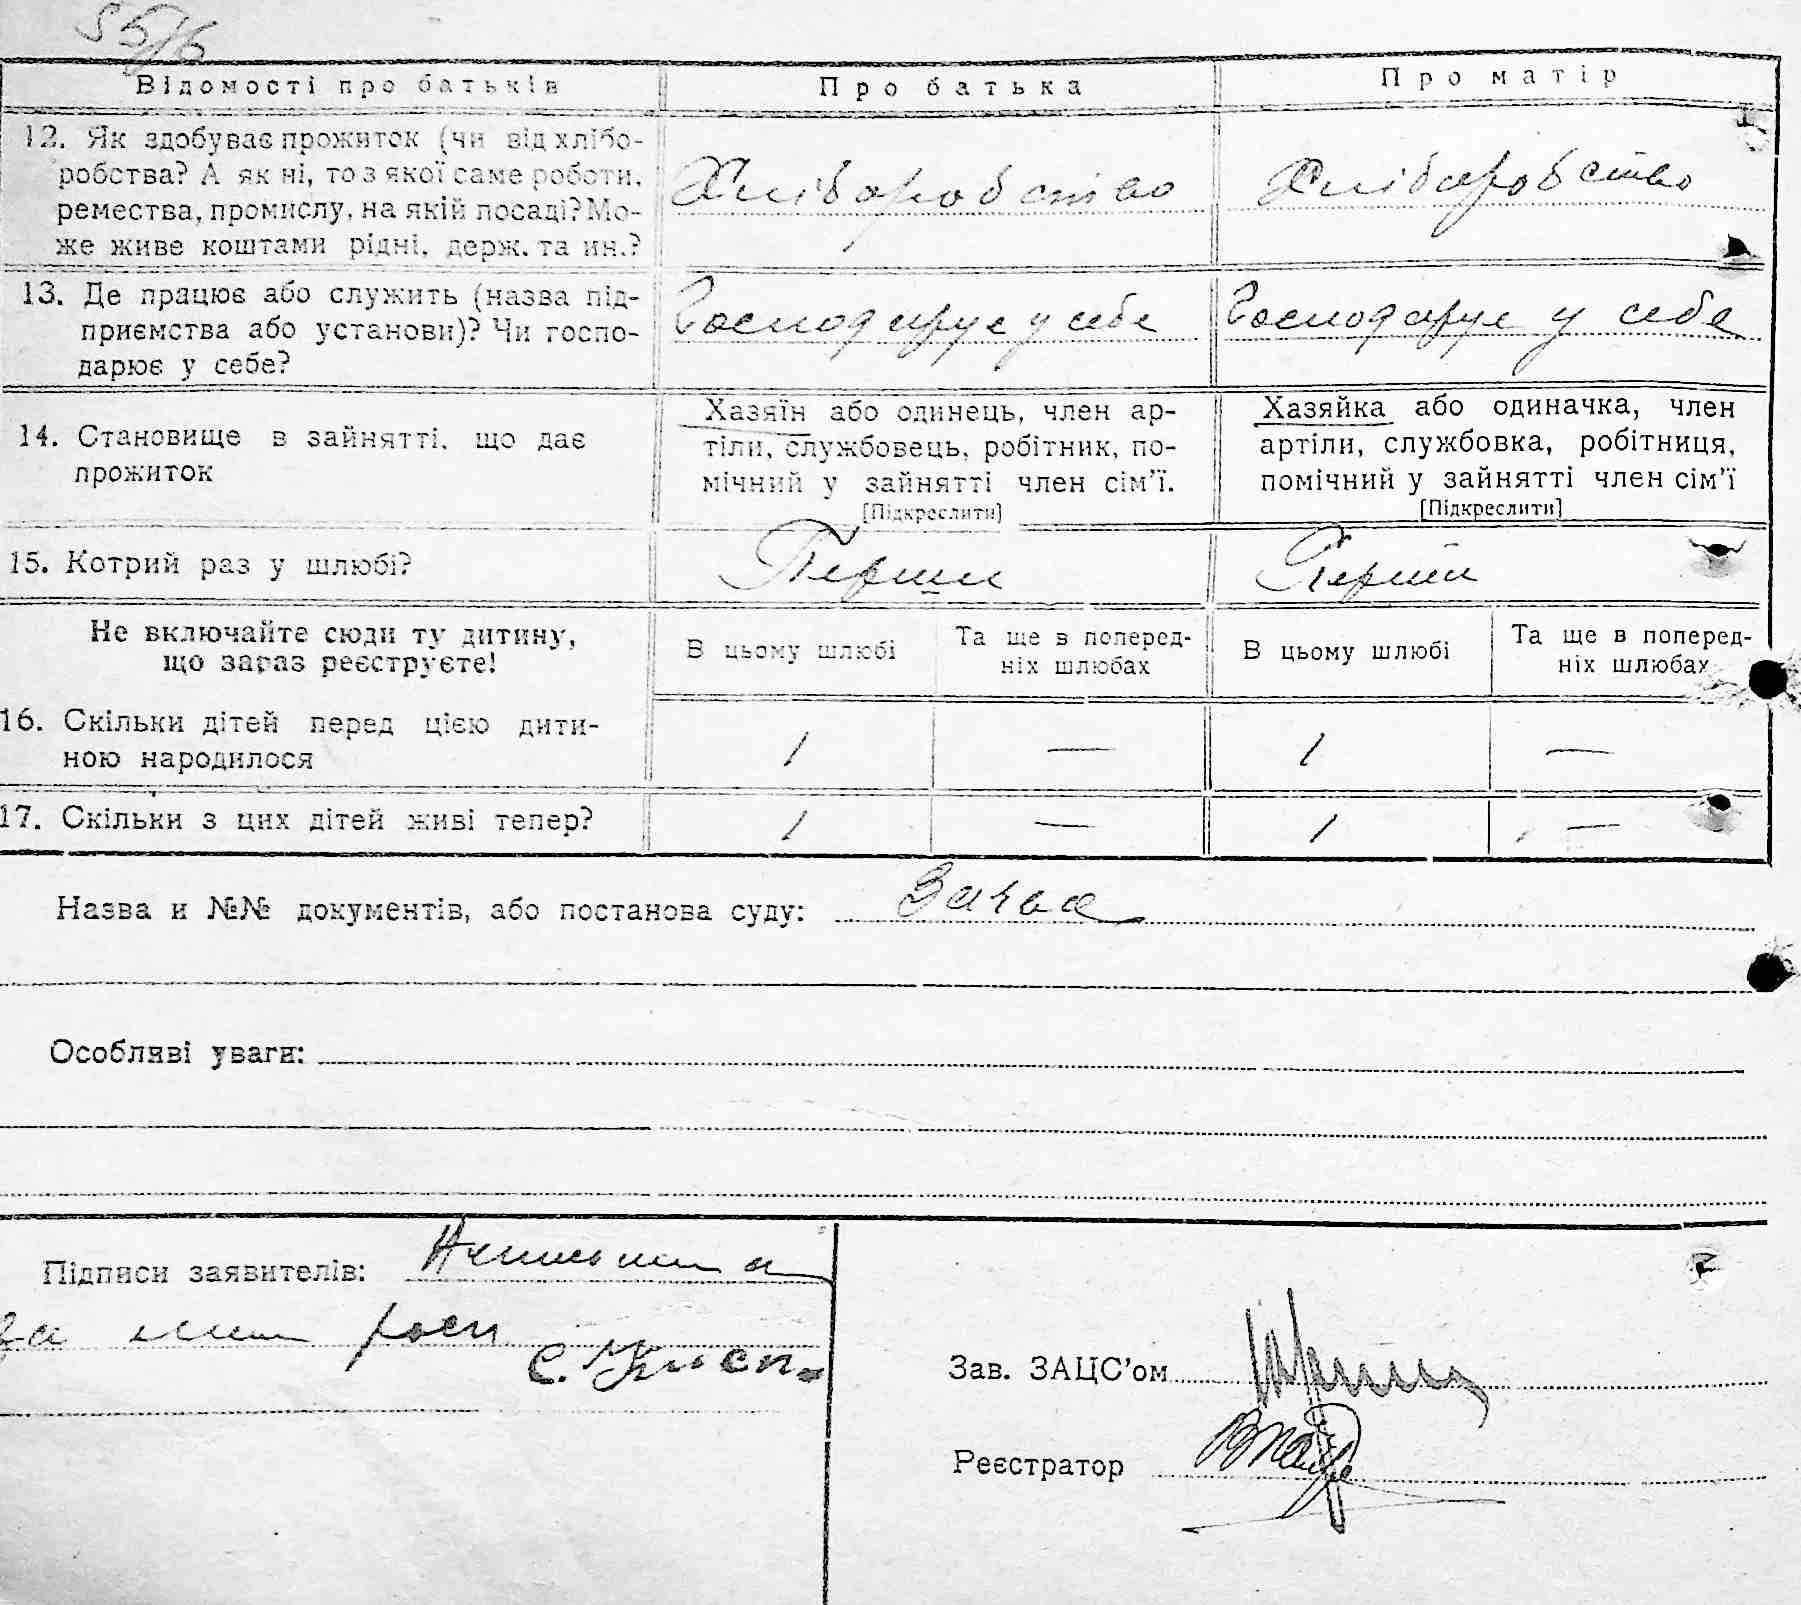 Відомості про батьків
Про батька
Про матір
12. Як здобуває прожиток (чи від хлібо-
робства? А як ні, то з якої саме роботи,
ремества, промислу, на якій посаді? Мо-
же живе коштами рідні, держ. та ин.?
Хліборобство
Хліборобство
13. Де працює або служить (назва під-
приємства або установи)? Чи госпо-
дарює у себе?
Господарує у себе
Господарує у себе
14. Становище в зайнятті, що дає
прожиток
Хазяїн або одинець, член ар-
тіли, службовець, робітник, по-
мічний у зайнятті член сім'ї.
[Підкреслити]
Хазяйка або одиначка, член
артіли, службовка, робітниця,
помічний у зайнятті член сім'ї
[Підкреслити]
15. Котрий раз у шлюбі?
Перши
Перший
Не включайте сюди ту дитину,
що зараз реєструєте!
В цьому шлюбі
Та ще в поперед-
ніх шлюбах
В цьому шлюбі
Та ще в поперед-
ніх шлюбах
16. Скільки дітей перед цією дити-
ною народилося
1 — 1 —
17. Скільки з цих дітей живі тепер?
1 — 1 —
Назва и №№ документів, або постанова суду: Заява
Особливі уваги:
Підписи заявителів:
Зав. ЗАЦС'ом
Реєстратор